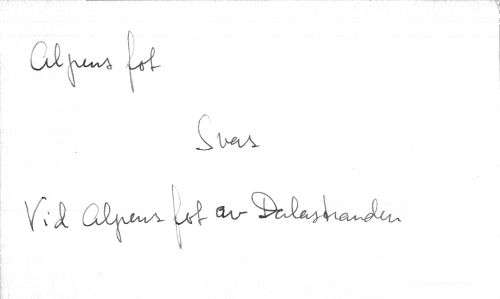 Alpens fot
Svas
Vid Alpens fot av Dalastranden